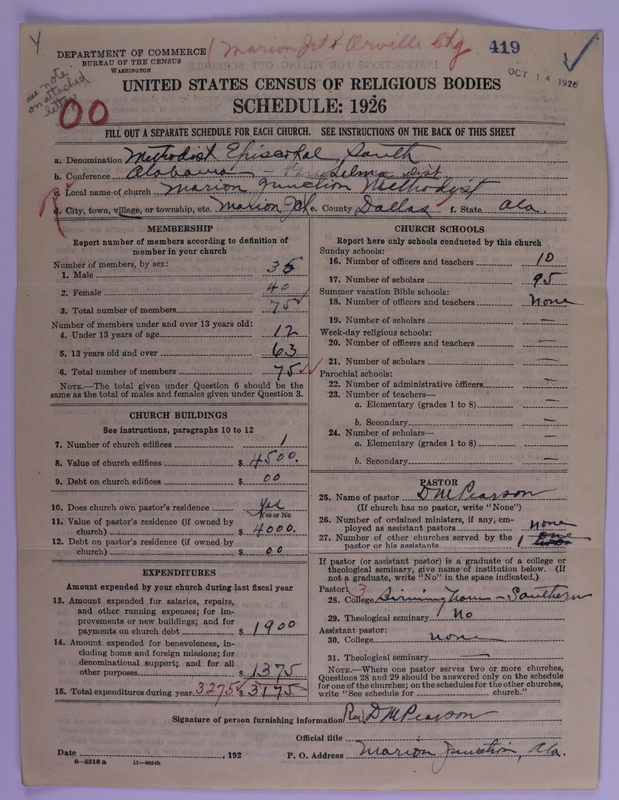 1 Marion Jct & Orville Chg
DEPARTMENT OF COMMERCE
BUREAU OF THE CENSUS
WASHINGTON
419
OCT 14 1926
see note
on attached
letter
00
UNITED STATES CENSUS OF RELIGIOUS BODIES
SCHEDULE: 1926
FILL OUT A SEPARATE SCHEDULE FOR EACH CHURCH. SEE INSTRUCTIONS ON THE BACK OF THIS SHEET
a. Denomination Methodist Episcopal, South
b. Conference Alabama - Selma Dist.
c. Local name of church Marion Junction Methodist
d. City, town, village, or township, etc. Marion Jct e. County Dallas f. State Ala.
MEMBERSHIP
Report number of members according to definition of
member in your church
Number of members, by sex:
1. Male 35
2. Female 40
3. Total number of members 75
Number of members under and over 13 years old:
4. Under 13 years of age 12
5. 13 years old and over 63
6. Total number of members 75
NOTE.—The total given under Question 6 should be the
same as the total of males and females given under Question 3.
CHURCH BUILDINGS
See instructions, paragraphs 10 to 12
7. Number of church edifices 1
8. Value of church edifices $ 4500.
9. Debt on church edifices $ 00
10. Does church own pastor's residence Yes
Yes or No
11. Value of pastor's residence (if owned by
church) $ 4000.
12. Debt on pastor's residence (if owned by
church) $ 00
EXPENDITURES
Amount expended by your church during last fiscal year
13. Amount expended for salaries, repairs,
and other running expenses; for im-
provements or new buildings; and for
payments on church debt $ 1900
14. Amount expended for benevolences, in-
cluding home and foreign missions; for
denominational support; and for all
other purposes $ 1375
15. Total expenditures during year 3275 $ 3175
CHURCH SCHOOLS
Report here only schools conducted by this church
Sunday schools:
16. Number of officers and teachers 10
17. Number of scholars 95
Summer vacation Bible schools:
18. Number of officers and teachers none
19. Number of scholars —
Week-day religious schools:
20. Number of officers and teachers —
21. Number of scholars —
Parochial schools:
22. Number of administrative officers —
23. Number of teachers—
a. Elementary (grades 1 to 8) —
b. Secondary —
24. Number of scholars—
a. Elementary (grades 1 to 8) —
b. Secondary —
PASTOR
25. Name of pastor D M Pearson
(If church has no pastor, write "None")
26. Number of ordained ministers, if any, em-
ployed as assistant pastors none
27. Number of other churches served by the
pastor or his assistants 1
If pastor (or assistant pastor) is a graduate of a college or
theological seminary, give name of institution below. (If
not a graduate, write "No" in the space indicated.)
Pastor: 3
28. College Birmingham - Southern
29. Theological seminary No
Assistant pastor:
30. College none
31. Theological seminary —
NOTE.—Where one pastor serves two or more churches,
Questions 28 and 29 should be answered only on the schedule
for one of the churches; on the schedules for the other churches,
write "See schedule for church."
Signature of person furnishing information Rev D M Pearson
Official title
Date , 192 P. O. Address Marion Junction, Ala.
8—5518 a 11—9054b